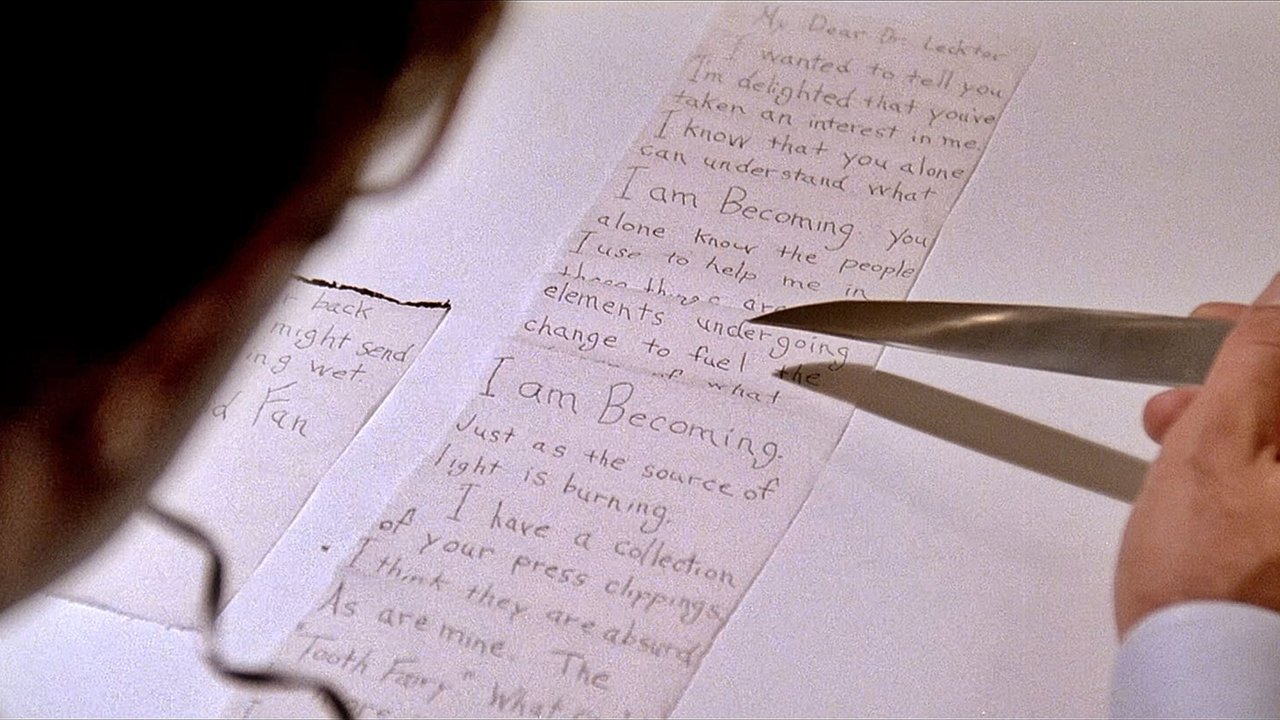 My Dear Dr. Lecktor
I wanted to tell you
I'm delighted that you've
taken an interest in me.
I know that you alone
can understand what
I am Becoming. you
alone know the people
I use to help me in
these things are
elements undergoing
change to fuel the
of what
I am Becoming.
Just as the source of
light is burning.
I have a collection
of your press clippings.
I think they are absurd.
As are mine. The
"Tooth Fairy" What
back
might send
ing wet.
d Fan